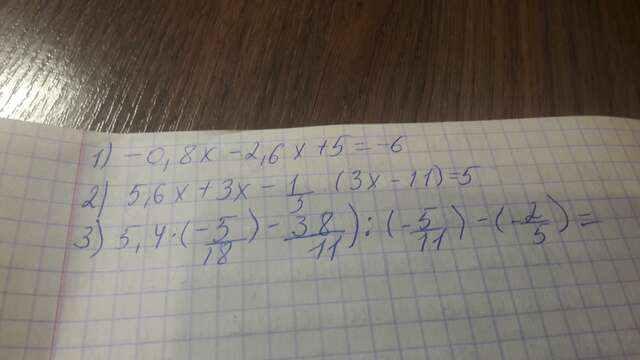 1) -0,8x -2,6x+5=-6
2) 5,6x+3x - 1/5 (3x-11)=5
3) 5,4·(-5/18) - 3 8/11) : (-5/11) - (-2/5) =